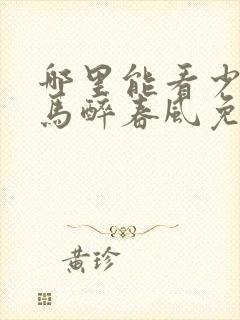 哪里能看少
马醉春风免
黄珍